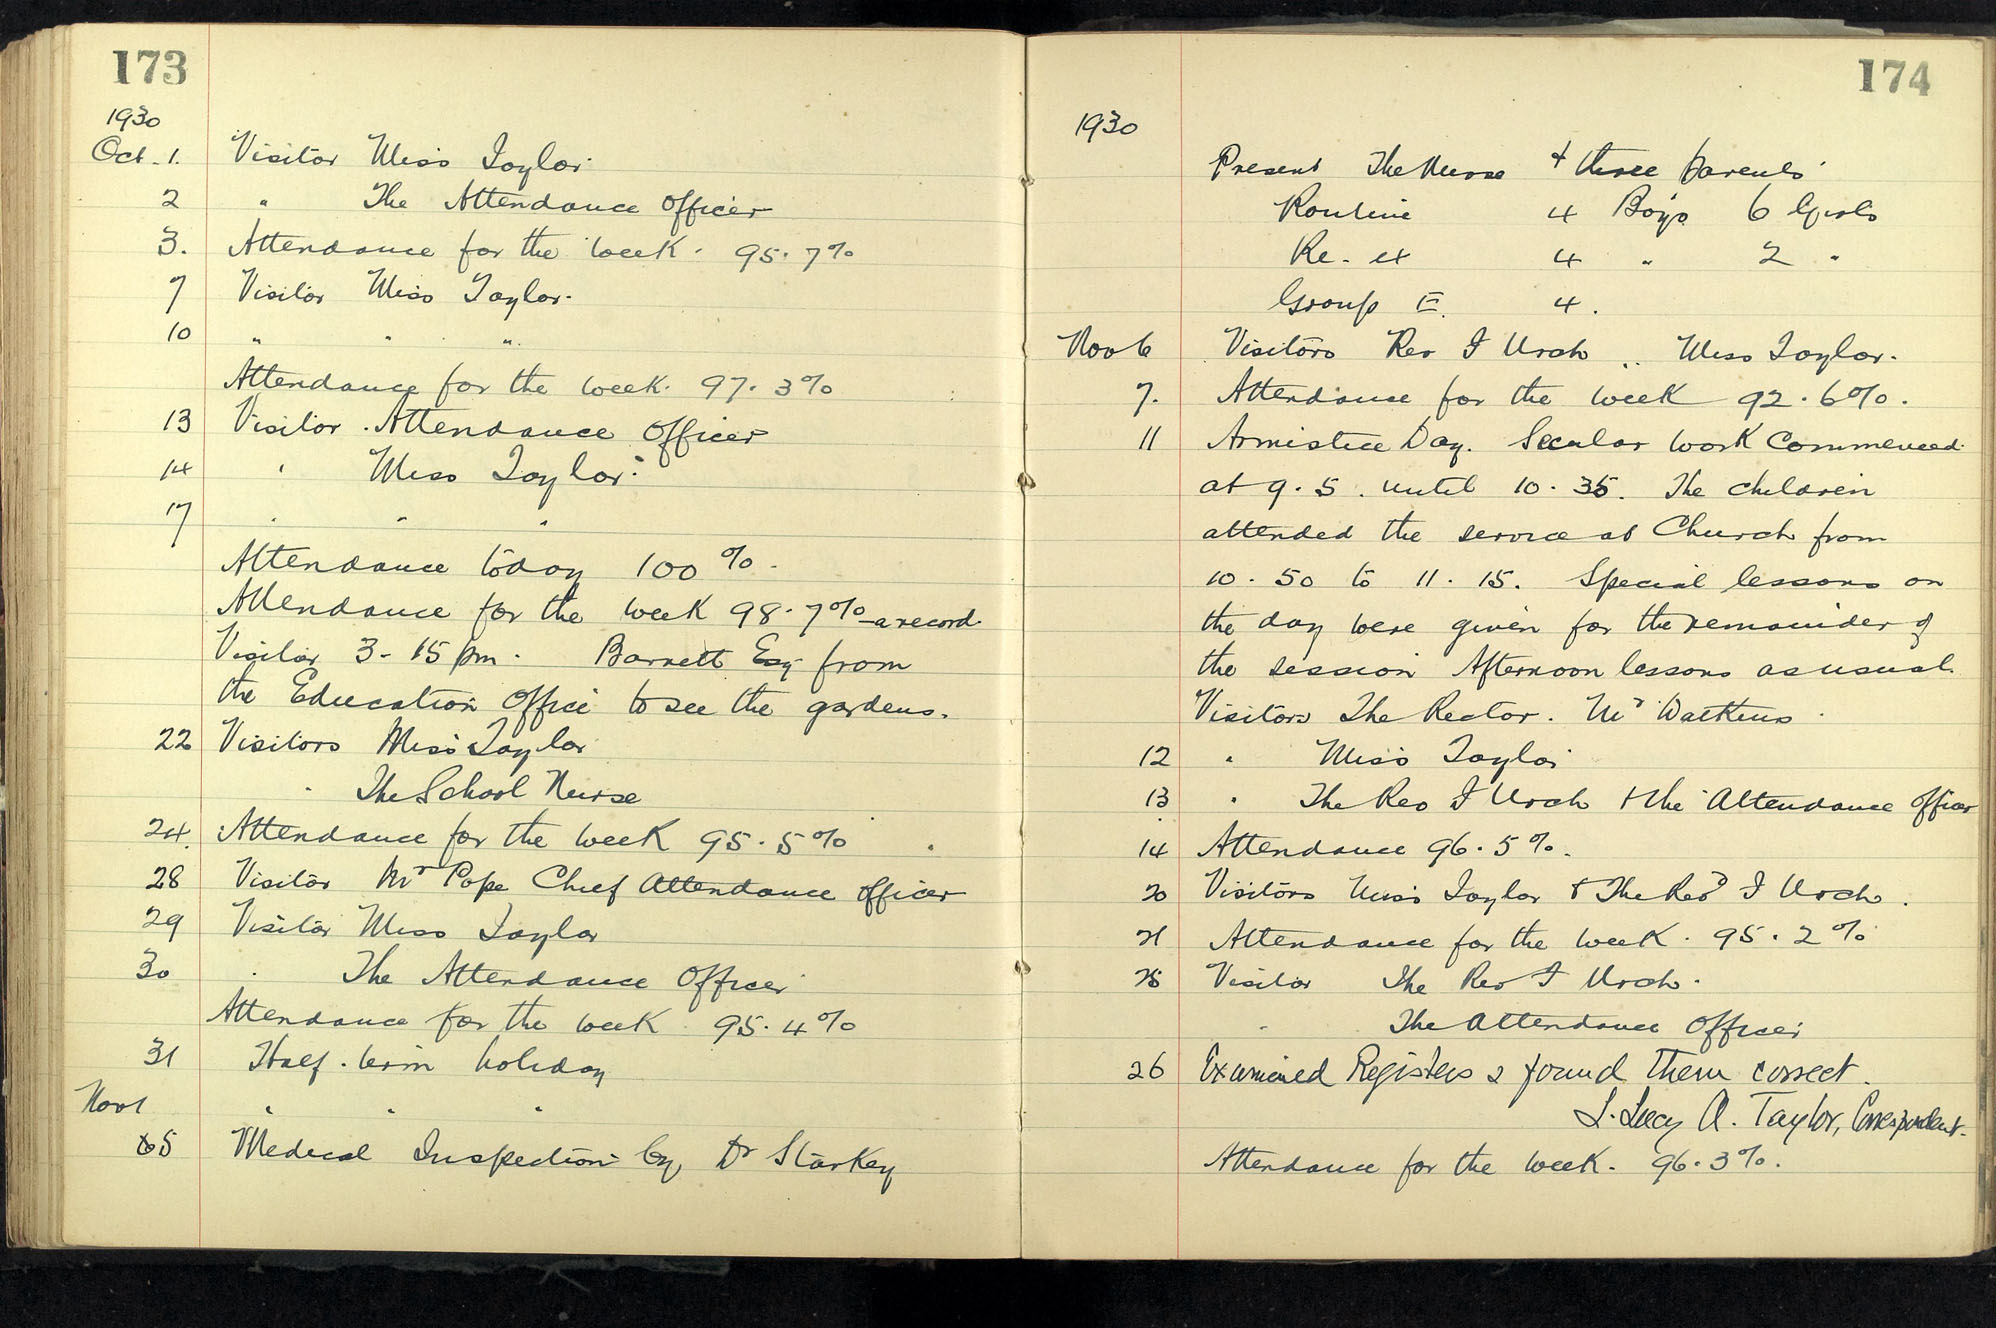 173
1930
Oct. 1. Visitor Miss Taylor.
2 " The Attendance Officer
3. Attendance for the week. 95.7%
7 Visitor Miss Taylor.
10 " " "
Attendance for the week. 97.3%
13 Visitor. Attendance Officer
14 " Miss Taylor.
17 " " "
Attendance today 100%.
Attendance for the week 98.7% - a record.
Visitor 3-15 pm. Barnett Esq from
the Education Office to see the gardens.
22 Visitors Miss Taylor
" The School Nurse
24. Attendance for the week 95.5%
28 Visitor Mr Pope Chief Attendance Officer
29 Visitor Miss Taylor
30 " The Attendance Officer
Attendance for the week. 95.4%
31 Half-term holiday
Nov 1 " " "
5 Medical Inspection by Dr Starkey
174
1930
Present The Nurse + three parents
Routine 4 Boys 6 Girls
Re-ex 4 " 2 "
Group 4.
Nov 6 Visitors Rev I Urch .. Miss Taylor.
7. Attendance for the week 92.6%.
11 Armistice Day. Secular work commenced
at 9.5. until 10.35. The children
attended the service at Church from
10.50 to 11.15. Special lessons on
the day were given for the remainder of
the session Afternoon lessons as usual.
Visitors The Rector. Mr Watkins.
12 " Miss Taylor
13 " The Rev I Urch + the Attendance Officer
14 Attendance 96.5%.
20 Visitors Miss Taylor & The Revd I Urch.
21 Attendance for the week. 95.2%
25 Visitor The Rev I Urch.
" The Attendance Officer
26 Examined Registers & found them correct.
L. Lucy A. Taylor, Correspondent.
Attendance for the week. 96.3%.